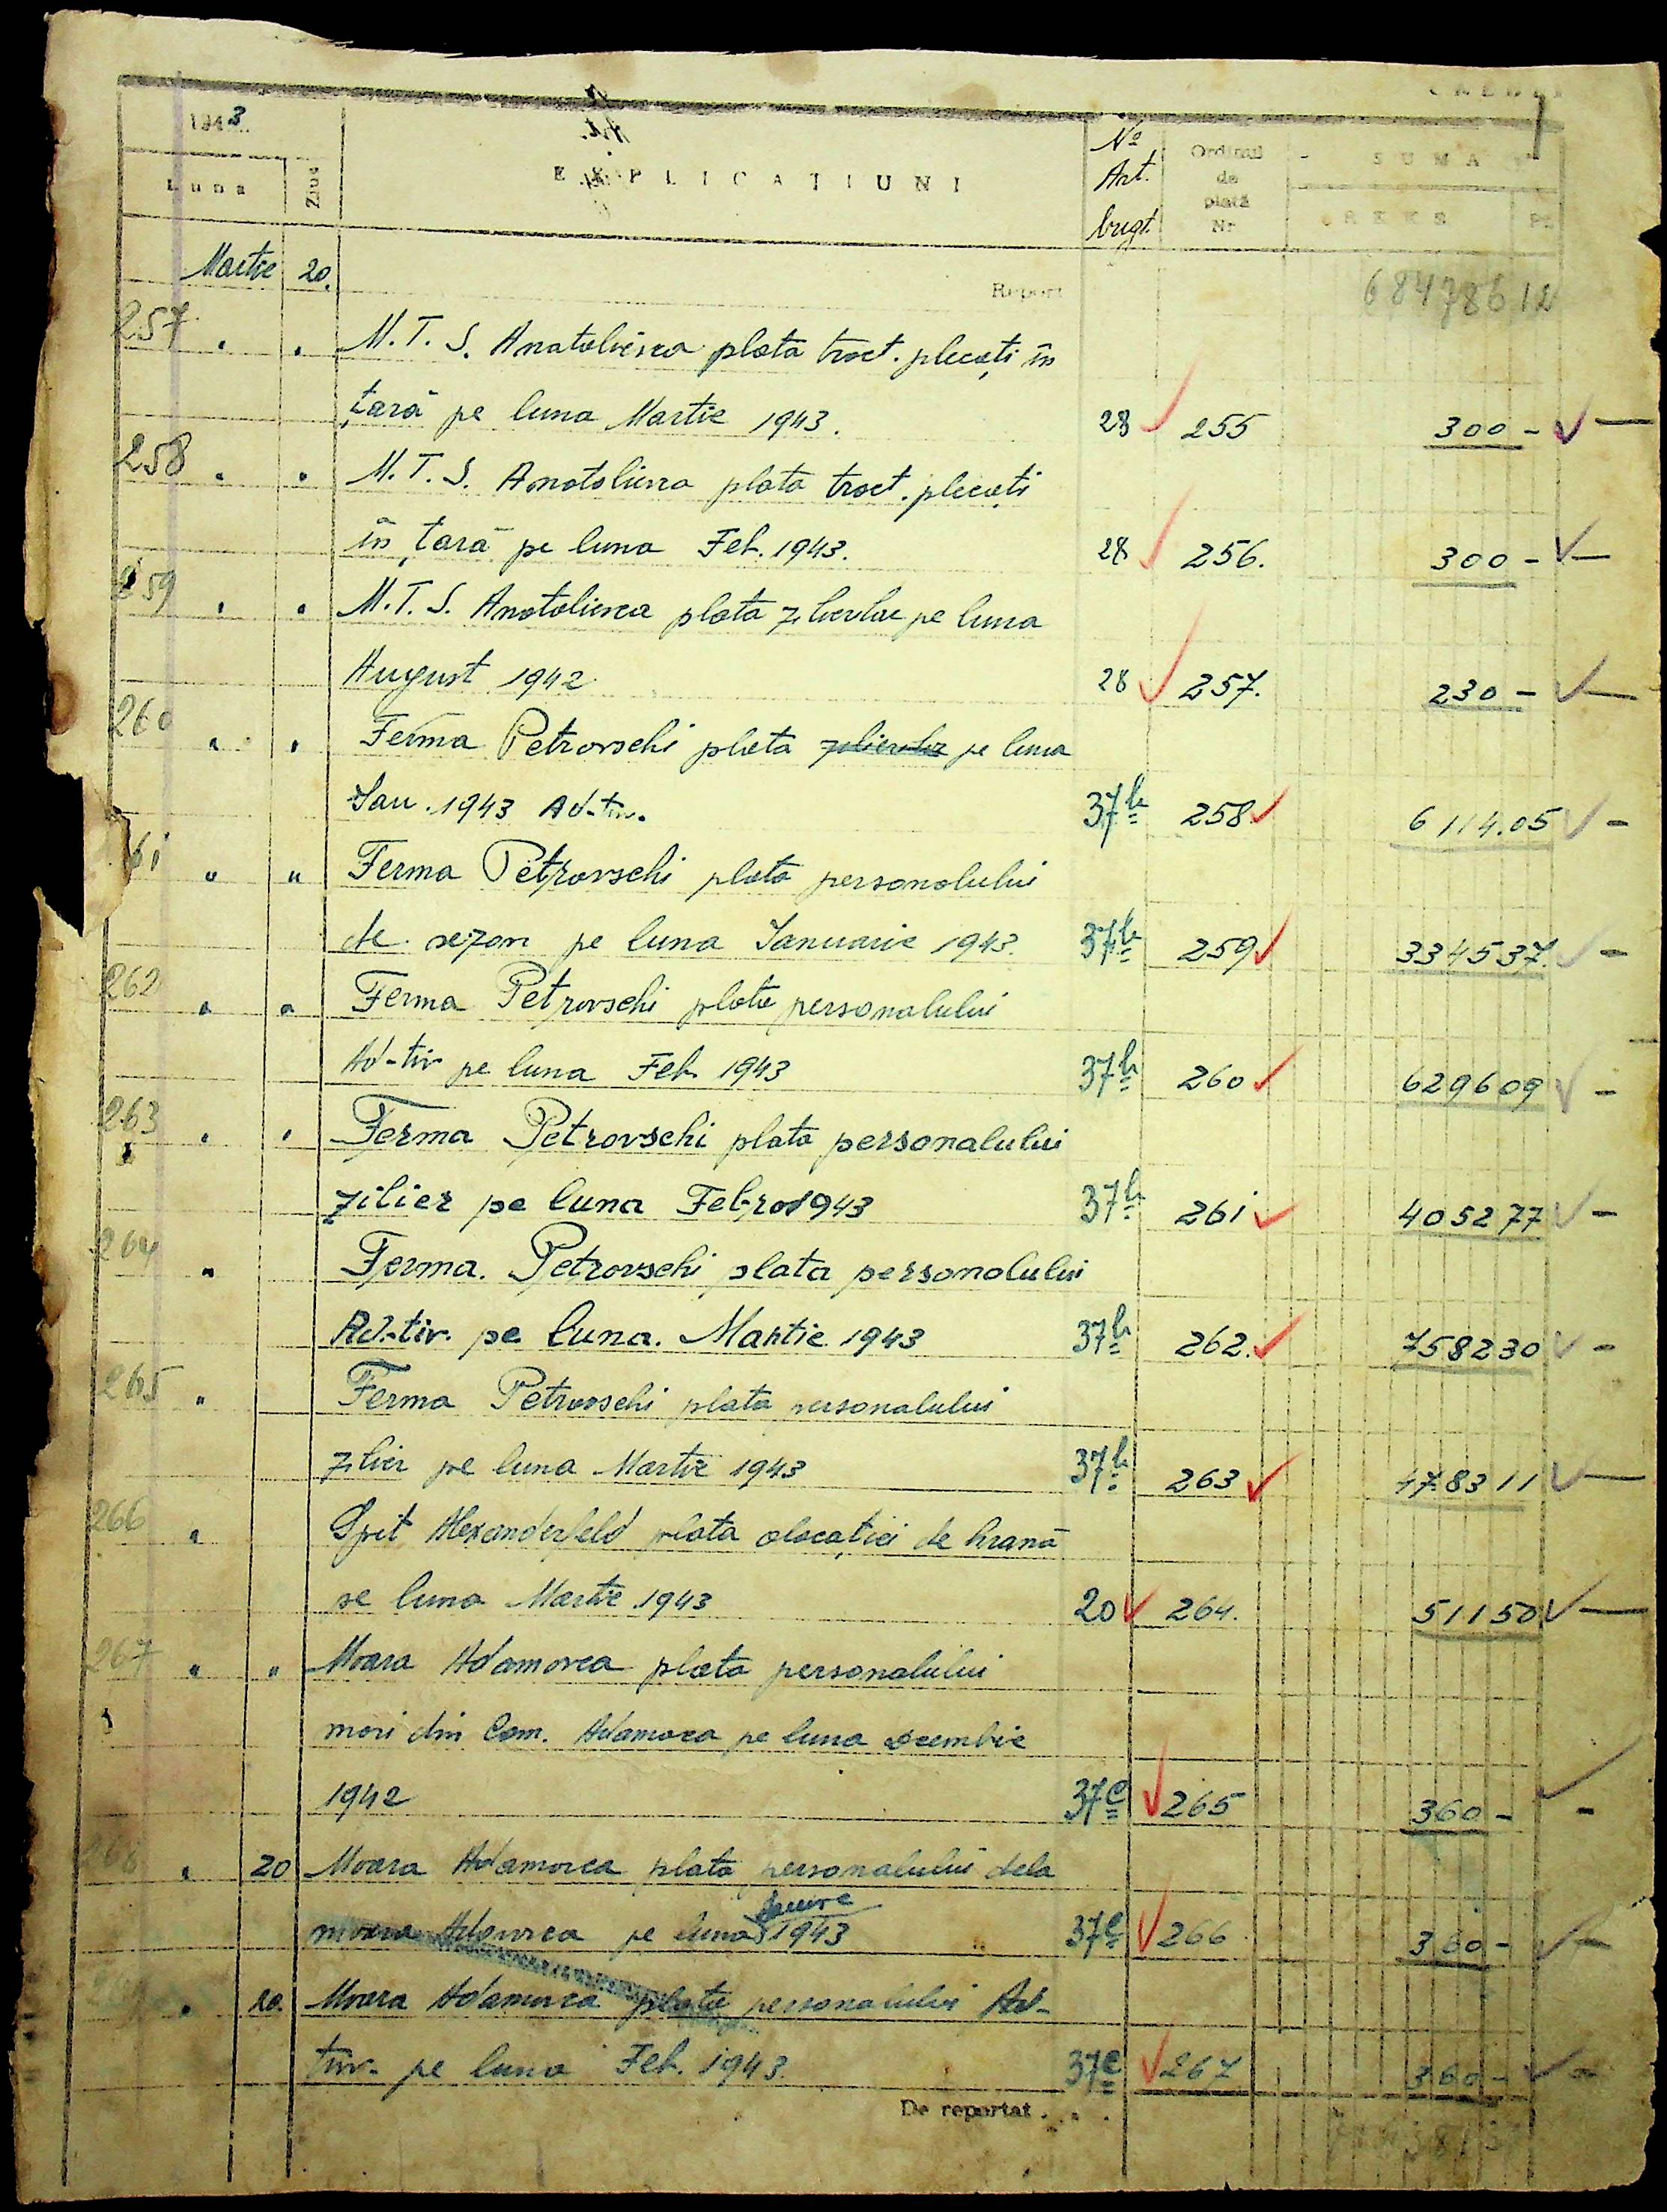 CREDIT
1943
Luna Ziua EXPLICAȚIUNI No Art. bugt. Ordinul de plată Nr. SUMA
Martie 20. Report 68478612
257 " " M.T.S. Anatolievca plata tract. plecați în
țară pe luna Martie 1943. 28 255 300 -
258 " " M.T.S. Anatolievca plata tract. plecați
în țară pe luna Feb. 1943. 28 256. 300 -
259 " " M.T.S. Anatolievca plata zilierilor pe luna
August 1942 28 257. 230 -
260 " " Ferma Petrovschi plata zilierilor pe luna
Ian. 1943 Ad-tiv. 37b 258 6114.05
61 " " Ferma Petrovschi plata personalului
de sezon pe luna Ianuarie 1943. 37b 259 334537.
262 " " Ferma Petrovschi plata personalului
Ad-tiv pe luna Feb. 1943 37b 260 629609
263 " " Ferma Petrovschi plata personalului
zilier pe luna Febr. 1943 37b 261 405277
264 " Ferma. Petrovschi plata personalului
Ad-tiv. pe luna. Martie 1943 37b 262. 758230
265 " Ferma Petrovschi plata personalului
zilier pe luna Martie 1943 37b 263 478311
266 " Alexanderfeld plata alocației de hrană
pe luna Martie 1943 20 264. 51150
267 " " Moara Adamovca plata personalului
mori din Com. Adamovca pe luna Decembrie
1942 37c 265 360 -
268 " 20 Moara Adamovca plata personalului dela
moara Adamovca pe luna 1943 37c 266 360 -
" 20. Moara Adamovca plata personalului Ad-
tiv. pe luna Feb. 1943. 37c 267 360 -
De reportat . . .